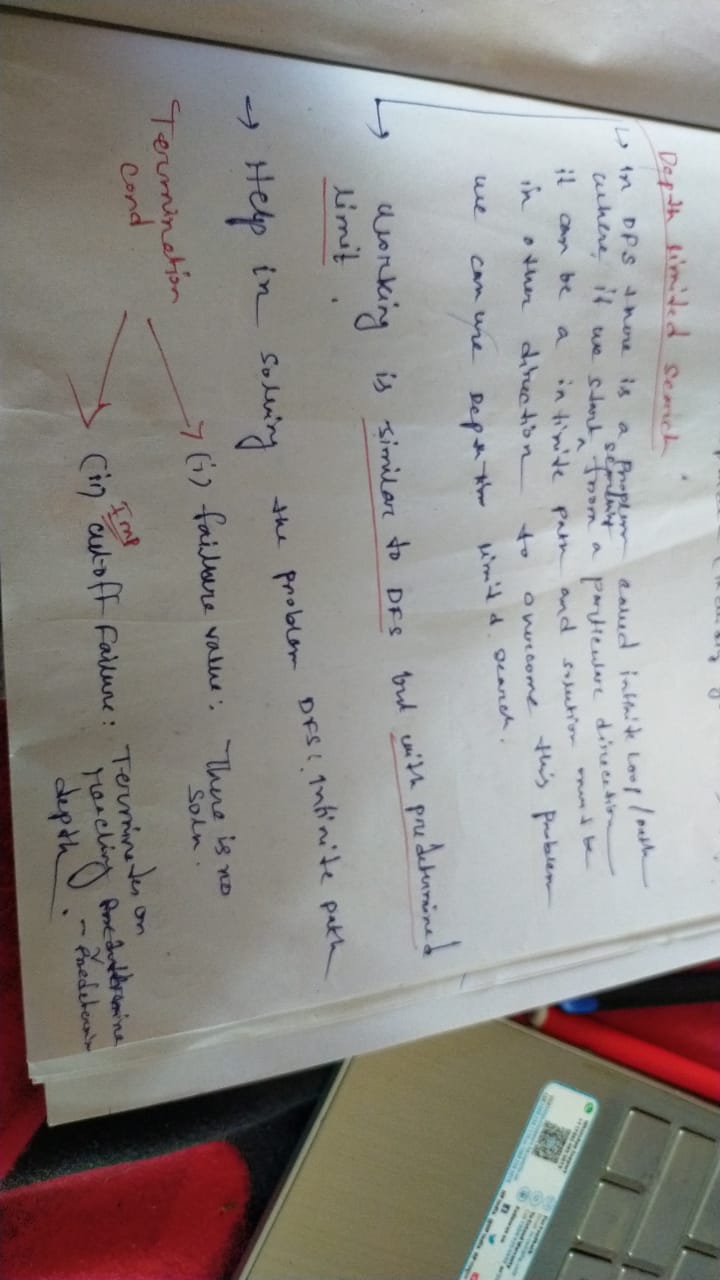 Depth limited search
↳ In DFS there is a problem called infinite loop/path
where, if we start searching from a particular direction
it can be a infinite path and solution must be
in other direction to overcome this problem
we can use Depth limited search.
→ working is similar to DFS but with predetermined
limit.
→ Help in solving the problem DFS: infinite path
Termination
cond
(i) failure value: There is no
soln.
Imp
(ii) cut-off failure: Terminates on
reaching predetermine
depth.